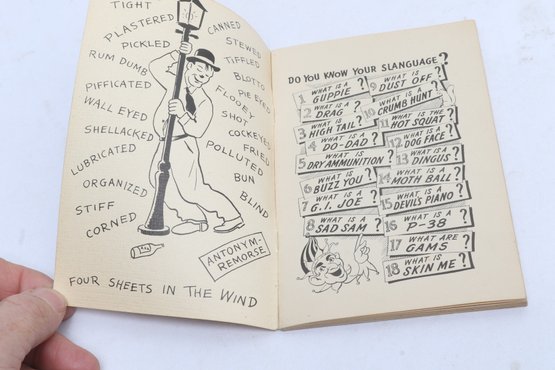 TIGHT
PLASTERED
PICKLED
RUM DUMB
PIFFICATED
WALL EYED
SHELLACKED
LUBRICATED
ORGANIZED
STIFF
CORNED
CANNED
STEWED
TIFFLED
BLOTTO
PIE EYED
FLOOEY
SHOT
COCKEYED
FRIED
POLLUTED
BUN
BLIND
ANTONYM-
REMORSE
FOUR SHEETS IN THE WIND
DO YOU KNOW YOUR SLANGUAGE?
1 WHAT IS A GUPPIE?
2 WHAT IS A DRAG?
3 WHAT IS HIGH TAIL?
4 WHAT IS A DO-DAD?
5 WHAT IS DRY AMMUNITION?
6 WHAT IS BUZZ YOU?
7 WHAT IS A G.I. JOE?
8 WHAT IS A SAD SAM?
9 WHAT IS DUST OFF?
10 WHAT IS A CRUMB HUNT?
11 WHAT IS THE HOT SQUAT?
12 WHAT IS A DOG FACE?
13 WHAT IS A DINGUS?
14 WHAT IS A MOTH BALL?
15 WHAT IS A DEVILS PIANO?
16 WHAT IS A P-38?
17 WHAT ARE GAMS?
18 WHAT IS SKIN ME?